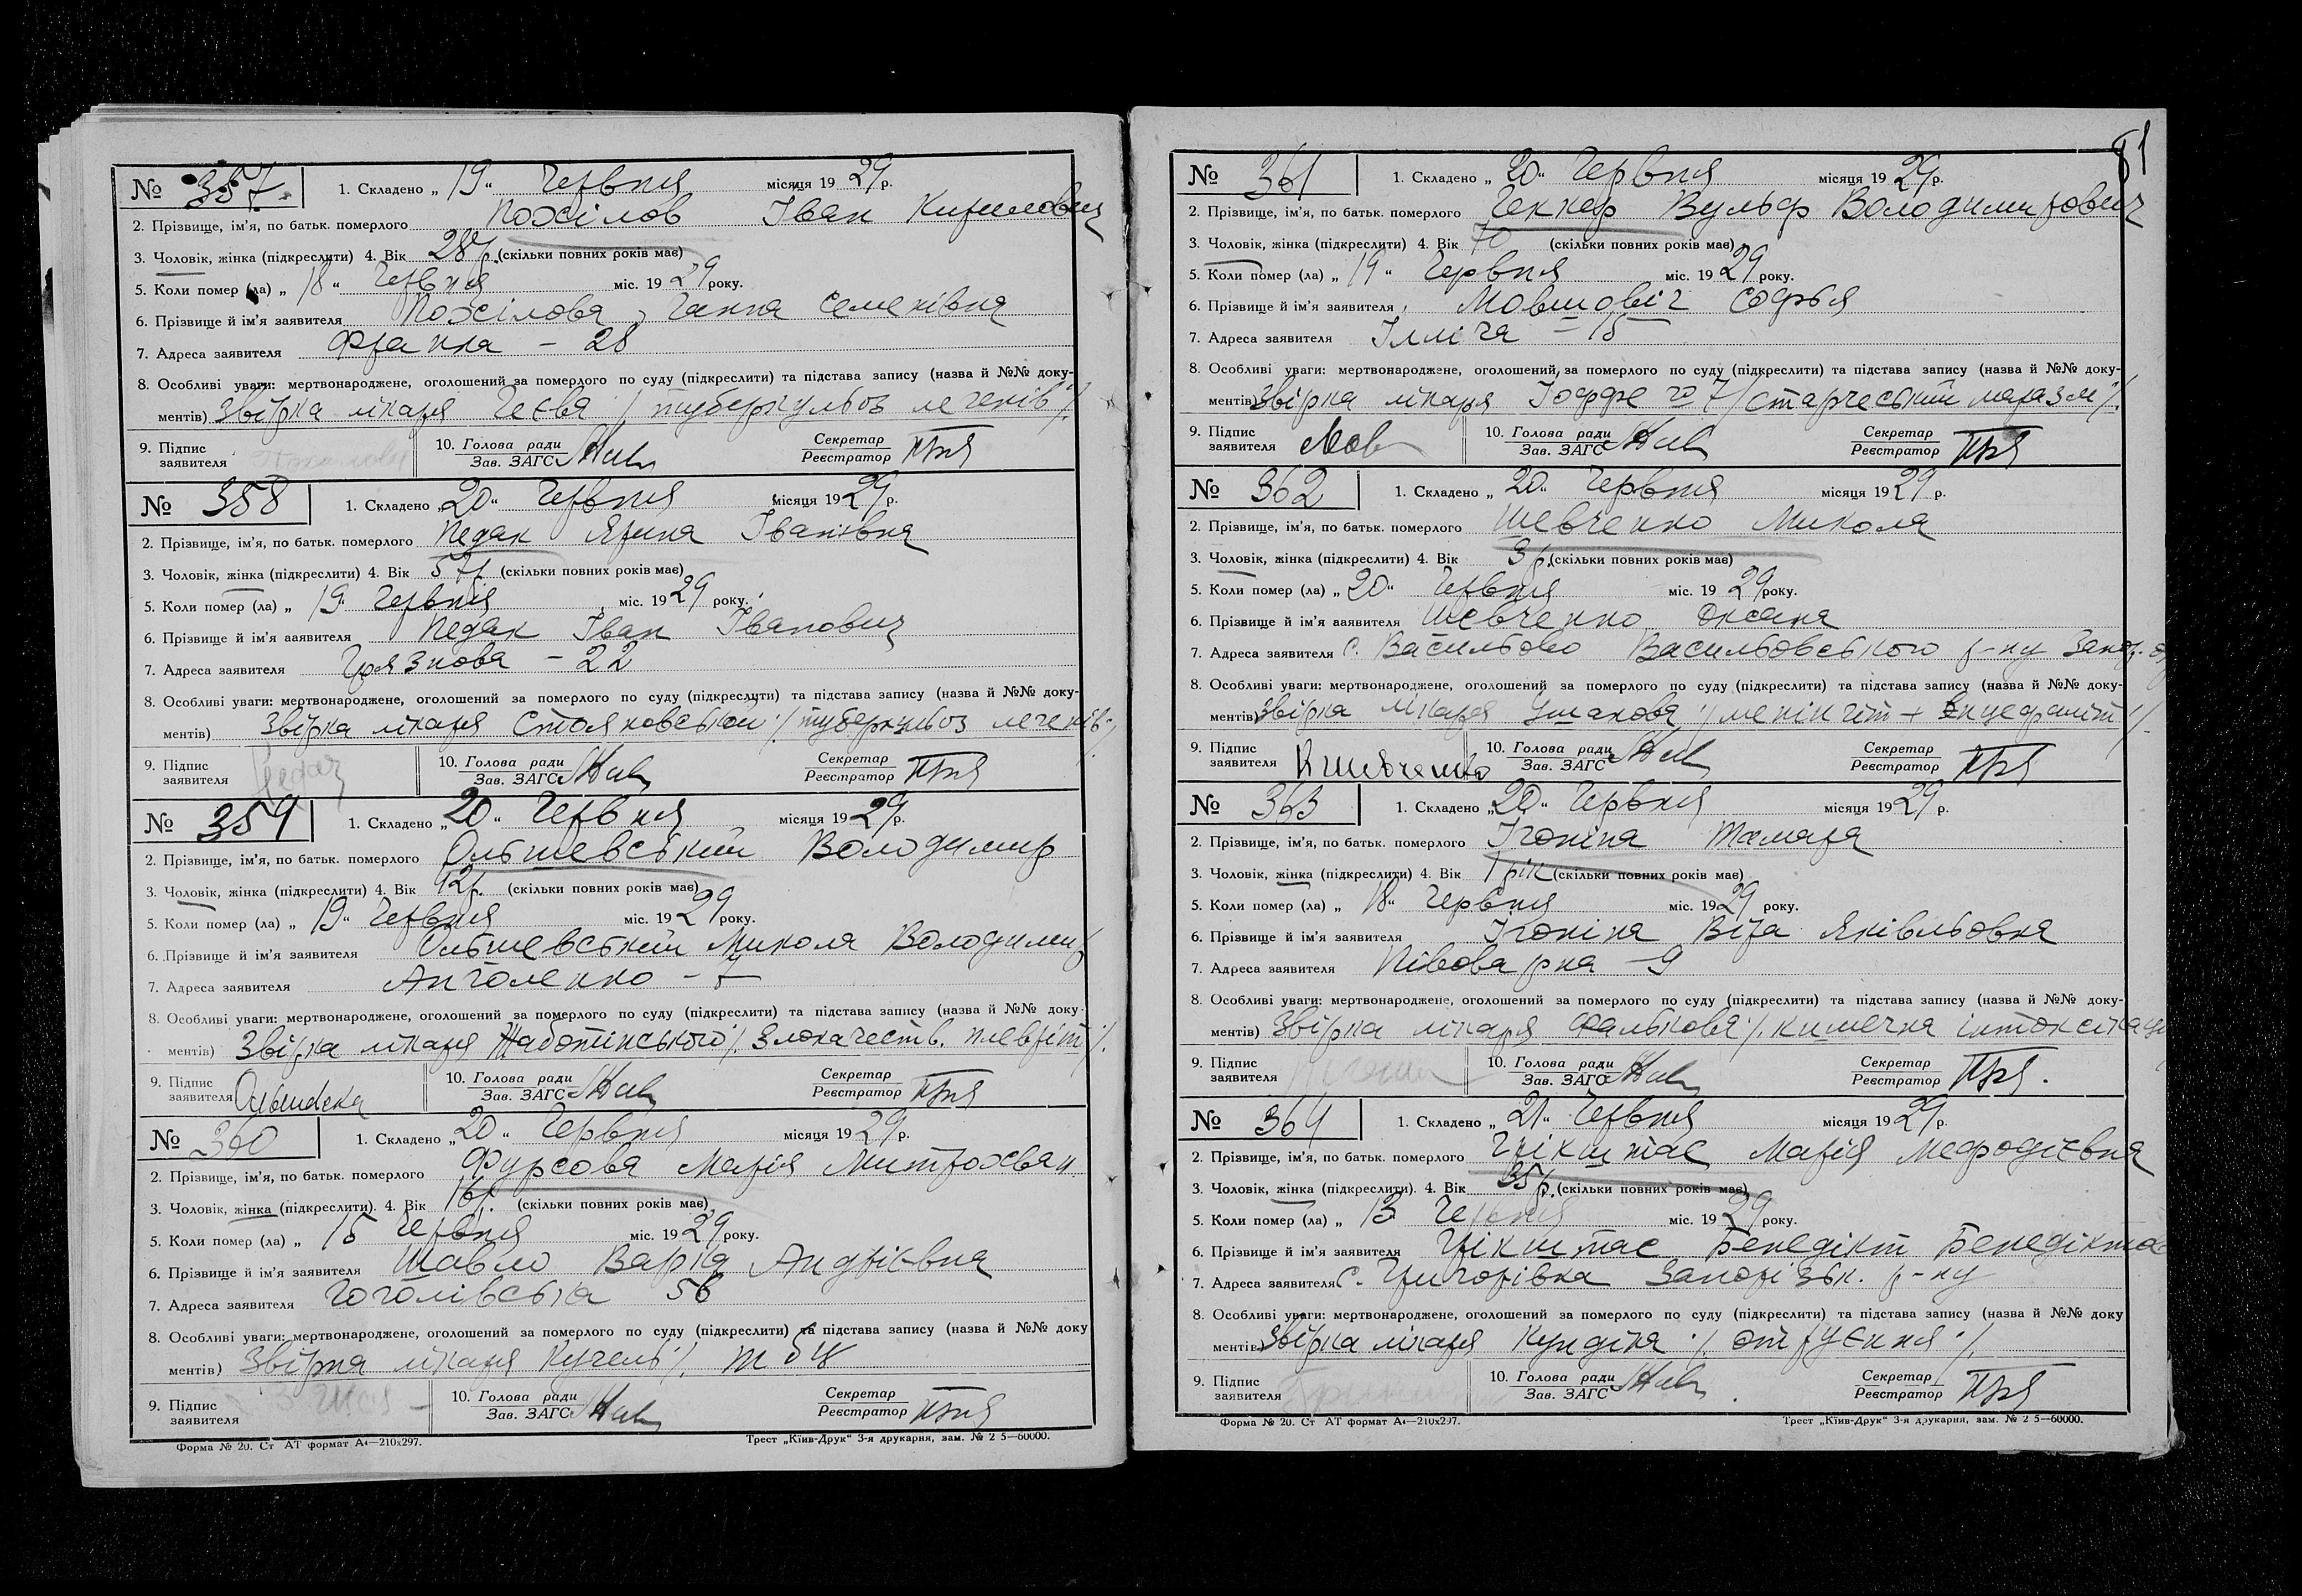 № 357. 1. Складено „19“ Червня місяця 1929 р.
2. Прізвище, ім'я, по батьк. померлого Похілов Іван Кирилович
3. Чоловік, жінка (підкреслити) 4. Вік 28 р. (скільки повних років має)
5. Коли помер (ла) „18“ Червня міс. 1929 року.
6. Прізвище й ім'я заявителя Похілова, Ганна Семенівна
7. Адреса заявителя Франка – 28
8. Особливі уваги: мертвонароджене, оголошений за померлого по суду (підкреслити) та підстава запису (назва й №№ доку-
ментів) Звірка лікаря /туберкульоз легенів/.
9. Підпис заявителя 10. Голова ради Зав. ЗАГС Секретар Реєстратор
№ 358 1. Складено „20“ Червня місяця 1929 р.
2. Прізвище, ім'я, по батьк. померлого Педак Ярина Іванівна
3. Чоловік, жінка (підкреслити) 4. Вік 57 р. (скільки повних років має)
5. Коли помер (ла) „19“ Червня міс. 1929 року.
6. Прізвище й ім'я заявителя Педак Іван Іванович
7. Адреса заявителя Грязнова – 22
8. Особливі уваги: мертвонароджене, оголошений за померлого по суду (підкреслити) та підстава запису (назва й №№ доку-
ментів) Звірка лікаря Стояновської /туберкульоз легенів/
9. Підпис заявителя Педак 10. Голова ради Зав. ЗАГС Секретар Реєстратор
№ 359 1. Складено „20“ Червня місяця 1929 р.
2. Прізвище, ім'я, по батьк. померлого Ольшевський Володимир
3. Чоловік, жінка (підкреслити) 4. Вік 12 р. (скільки повних років має)
5. Коли помер (ла) „19“ Червня міс. 1929 року.
6. Прізвище й ім'я заявителя Ольшевський Микола Володимир
7. Адреса заявителя Анголенко – 7
8. Особливі уваги: мертвонароджене, оголошений за померлого по суду (підкреслити) та підстава запису (назва й №№ доку-
ментів) Звірка лікаря Жаботінського /Злокачеств. плевріт/.
9. Підпис заявителя 10. Голова ради Зав. ЗАГС Секретар Реєстратор
№ 360 1. Складено „20“ Червня місяця 1929 р.
2. Прізвище, ім'я, по батьк. померлого Фурсова Марія Митрохван
3. Чоловік, жінка (підкреслити). 4. Вік 16 р. (скільки повних років має)
5. Коли помер (ла) „15 Червня міс. 1929 року.
6. Прізвище й ім'я заявителя Шавло Варка Андрієвна
7. Адреса заявителя Гоголівська 56
8. Особливі уваги: мертвонароджене, оголошений за померлого по суду (підкреслити) та підстава запису (назва й №№ доку
ментів) Звірка лікаря Кугель /. тбц
9. Підпис заявителя 10. Голова ради Зав. ЗАГС Секретар Реєстратор
Форма № 20. Ст АТ формат А4—210x297. Трест „Київ-Друк“ 3-я друкарня, зам. № 2 5—60000.
81
№ 361 1. Складено „20“ Червня місяця 1929 р.
2. Прізвище, ім'я, по батьк. померлого Геккер Вульф Володимирович
3. Чоловік, жінка (підкреслити) 4. Вік 70 (скільки повних років має)
5. Коли помер (ла) „19“ Червня міс. 1929 року.
6. Прізвище й ім'я заявителя Мовшовіч Софья
7. Адреса заявителя Ілліча – 15
8. Особливі уваги: мертвонароджене, оголошений за померлого по суду (підкреслити) та підстава запису (назва й №№ доку-
ментів) Звірка лікаря Іоффе /старческий маразм/.
9. Підпис заявителя Мов 10. Голова ради Зав. ЗАГС Секретар Реєстратор
№ 362 1. Складено „20“ Червня місяця 1929 р.
2. Прізвище, ім'я, по батьк. померлого Шевченко Микола
3. Чоловік, жінка (підкреслити) 4. Вік 3 р. (скільки повних років має)
5. Коли помер (ла) „20“ Червня міс. 1929 року.
6. Прізвище й ім'я заявителя Шевченко Оксана
7. Адреса заявителя с. Васильово Васильовського р-ну Запор.
8. Особливі уваги: мертвонароджене, оголошений за померлого по суду (підкреслити) та підстава запису (назва й №№ доку-
ментів) Звірка лікаря Ушакова /менінгіт + енцефаліт/.
9. Підпис заявителя Шевченко 10. Голова ради Зав. ЗАГС Секретар Реєстратор
№ 363 1. Складено „20“ Червня місяця 1929 р.
2. Прізвище, ім'я, по батьк. померлого Ігоніна Тамара
3. Чоловік, жінка (підкреслити) 4. Вік 1 рік (скільки повних років має)
5. Коли помер (ла) „18“ Червня міс. 1929 року.
6. Прізвище й ім'я заявителя Ігоніна Віра Яківльовна
7. Адреса заявителя Півоварна – 9
8. Особливі уваги: мертвонароджене, оголошений за померлого по суду (підкреслити) та підстава запису (назва й №№ доку-
ментів) Звірка лікаря Фалькова /. кишечна інтоксікац
9. Підпис заявителя 10. Голова ради Зав. ЗАГС Секретар Реєстратор
№ 364 1. Складено „21“ Червня місяця 1929 р.
2. Прізвище, ім'я, по батьк. померлого Грікштас Марія Мефодієвна
3. Чоловік, жінка (підкреслити). 4. Вік 35 р. (скільки повних років має)
5. Коли помер (ла) „13 Червня міс. 1929 року.
6. Прізвище й ім'я заявителя Грікштас Бенедікт Бенедікто
7. Адреса заявителя с. Григорівка Запорізьк. р-ну
8. Особливі уваги: мертвонароджене, оголошений за померлого по суду (підкреслити) та підстава запису (назва й №№ доку
ментів) Звірка лікаря Кундіна /. отруєння /.
9. Підпис заявителя 10. Голова ради Зав. ЗАГС Секретар Реєстратор
Форма № 20. Ст АТ формат А4—210x297. Трест „Київ-Друк“ 3-я друкарня, зам. № 2 5—60000.